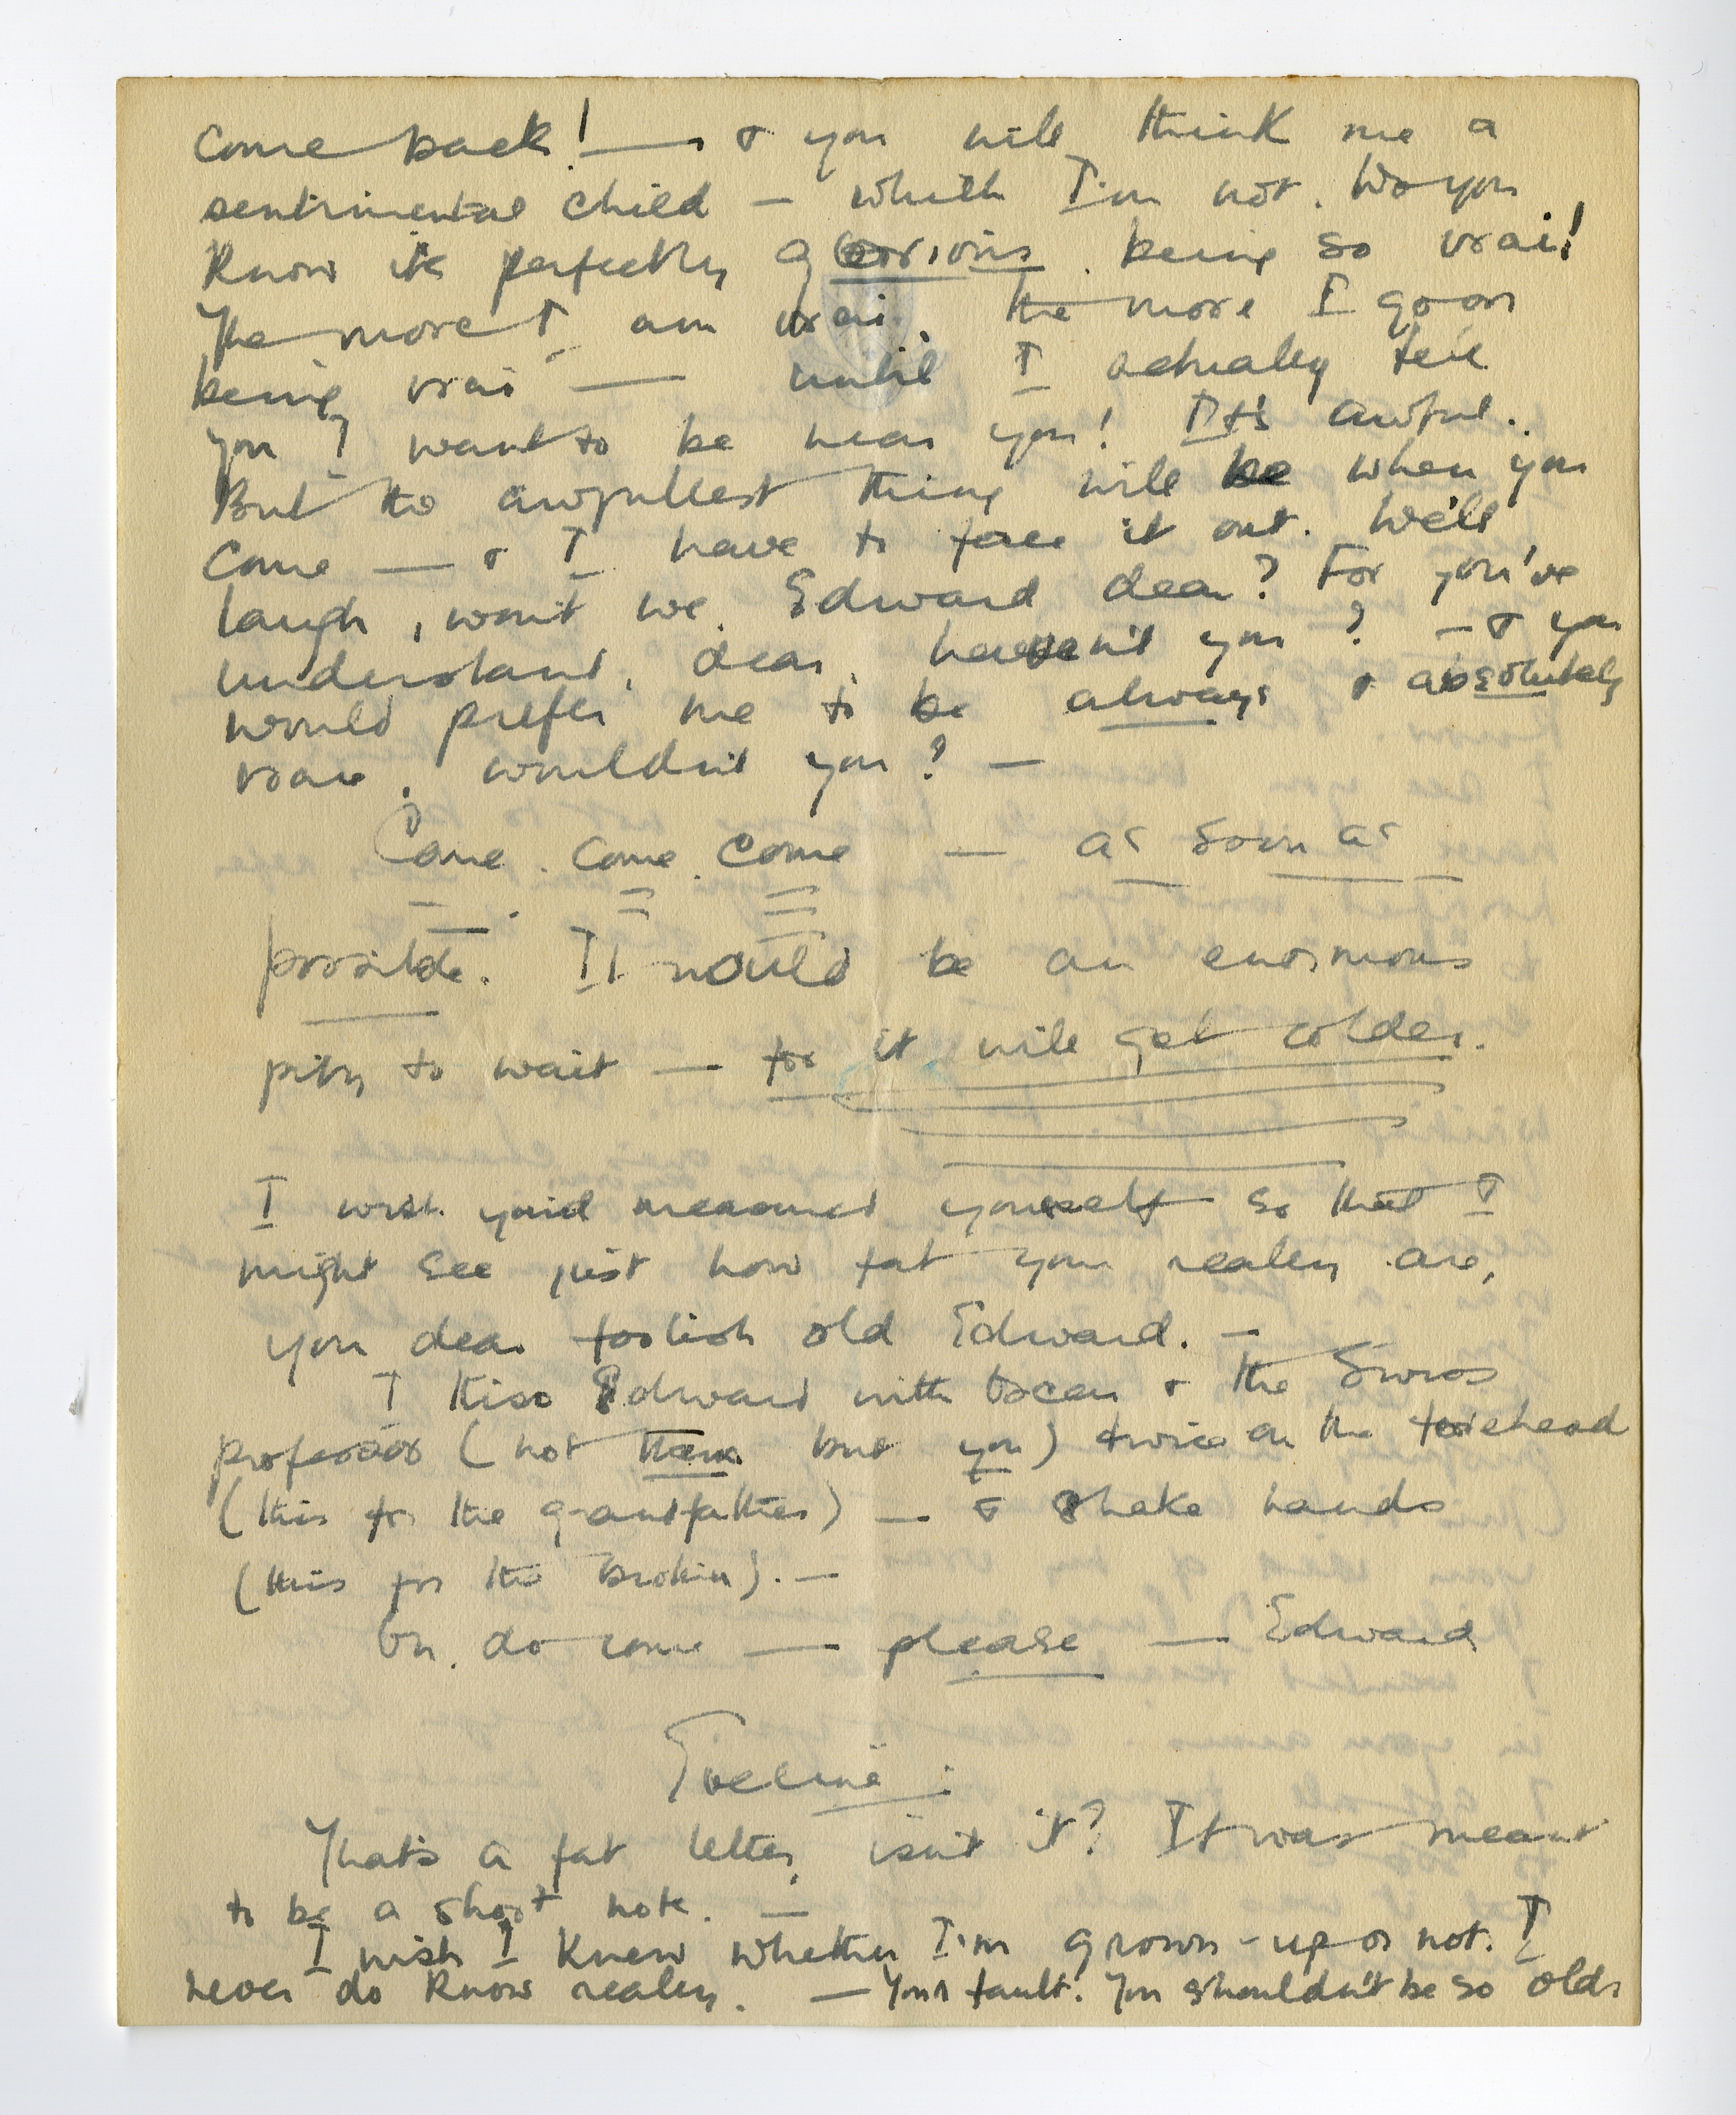 come back! — & you will think me a
sentimental child — which I'm not. Do you
know it's perfectly glorious being so vrai!
The more I am vrai, the more I go on
being vrai — until I actually tell
you I want to be near you! It's awful.
But the awfullest thing will be when you
come — & I have to face it out. We'll
laugh, won't we, Edward dear? For you've
understand, dear, haven't you? — & you
would prefer me to be always & absolutely
vraie, wouldn't you? —
Come. come. come — as soon as
possible. It would be an enormous
pity to wait — for it will get colder.
I wish you'd measured yourself so that I
might see just how fat you really are,
you dear foolish old Edward. —
I kiss Edward with & the Swiss
professor (not them but you) twice on the forehead
(this for the grandfather) — & shake hands
(this for the brother). —
Oh, do come — please — Edward
Eveline:
That's a fat letter, isn't it? It was meant
to be a short note. —
I wish I knew whether I'm grown-up or not. I
never do know really. — Your fault. You shouldn't be so old